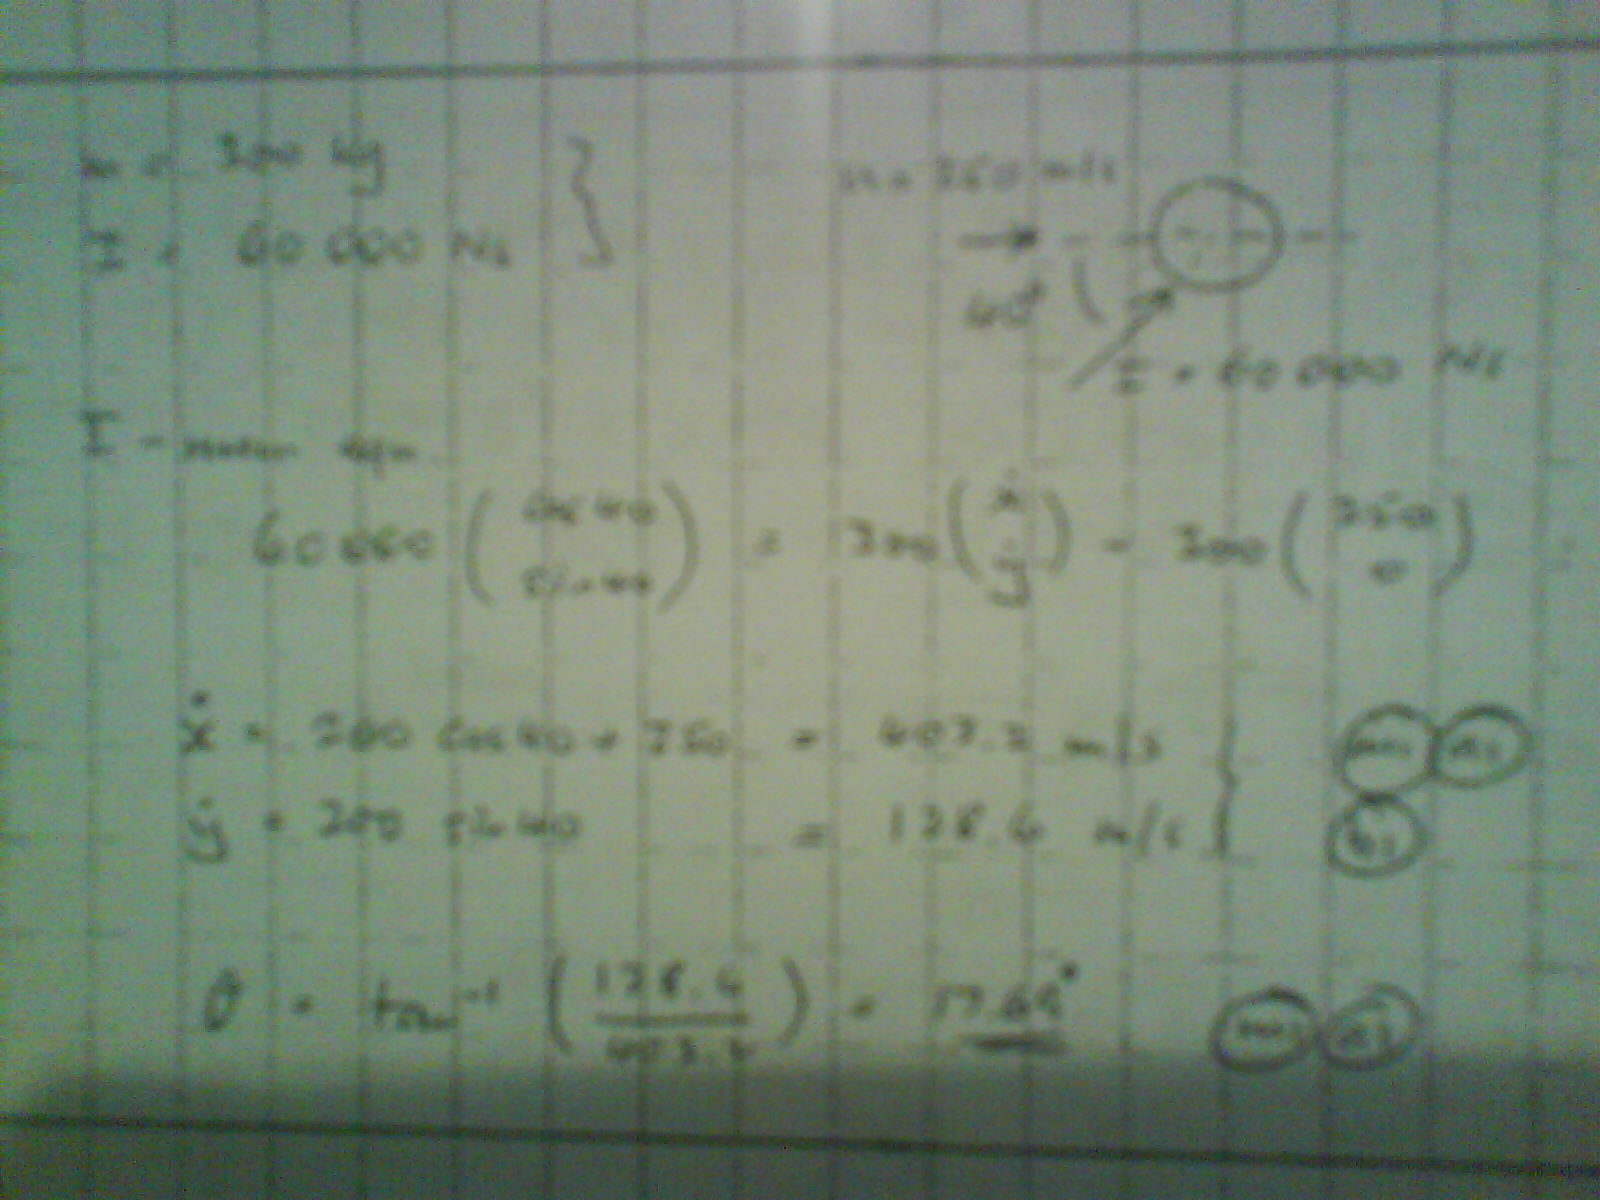 m = 300 kg
I = 60 000 Ns
u = 250 m/s
40°
I = 60 000 Ns
I - mom eqn
60 000 ( cos 40 sin 40 ) = 300 ( ẋ ẏ ) - 300 ( 250 0 )
ẋ = 200 cos 40 + 250 = 403.2 m/s
M1 A1
ẏ = 200 sin 40 = 128.6 m/s
B1
θ = tan⁻¹ ( 128.6 / 403.2 ) = 17.69°
M1 A1